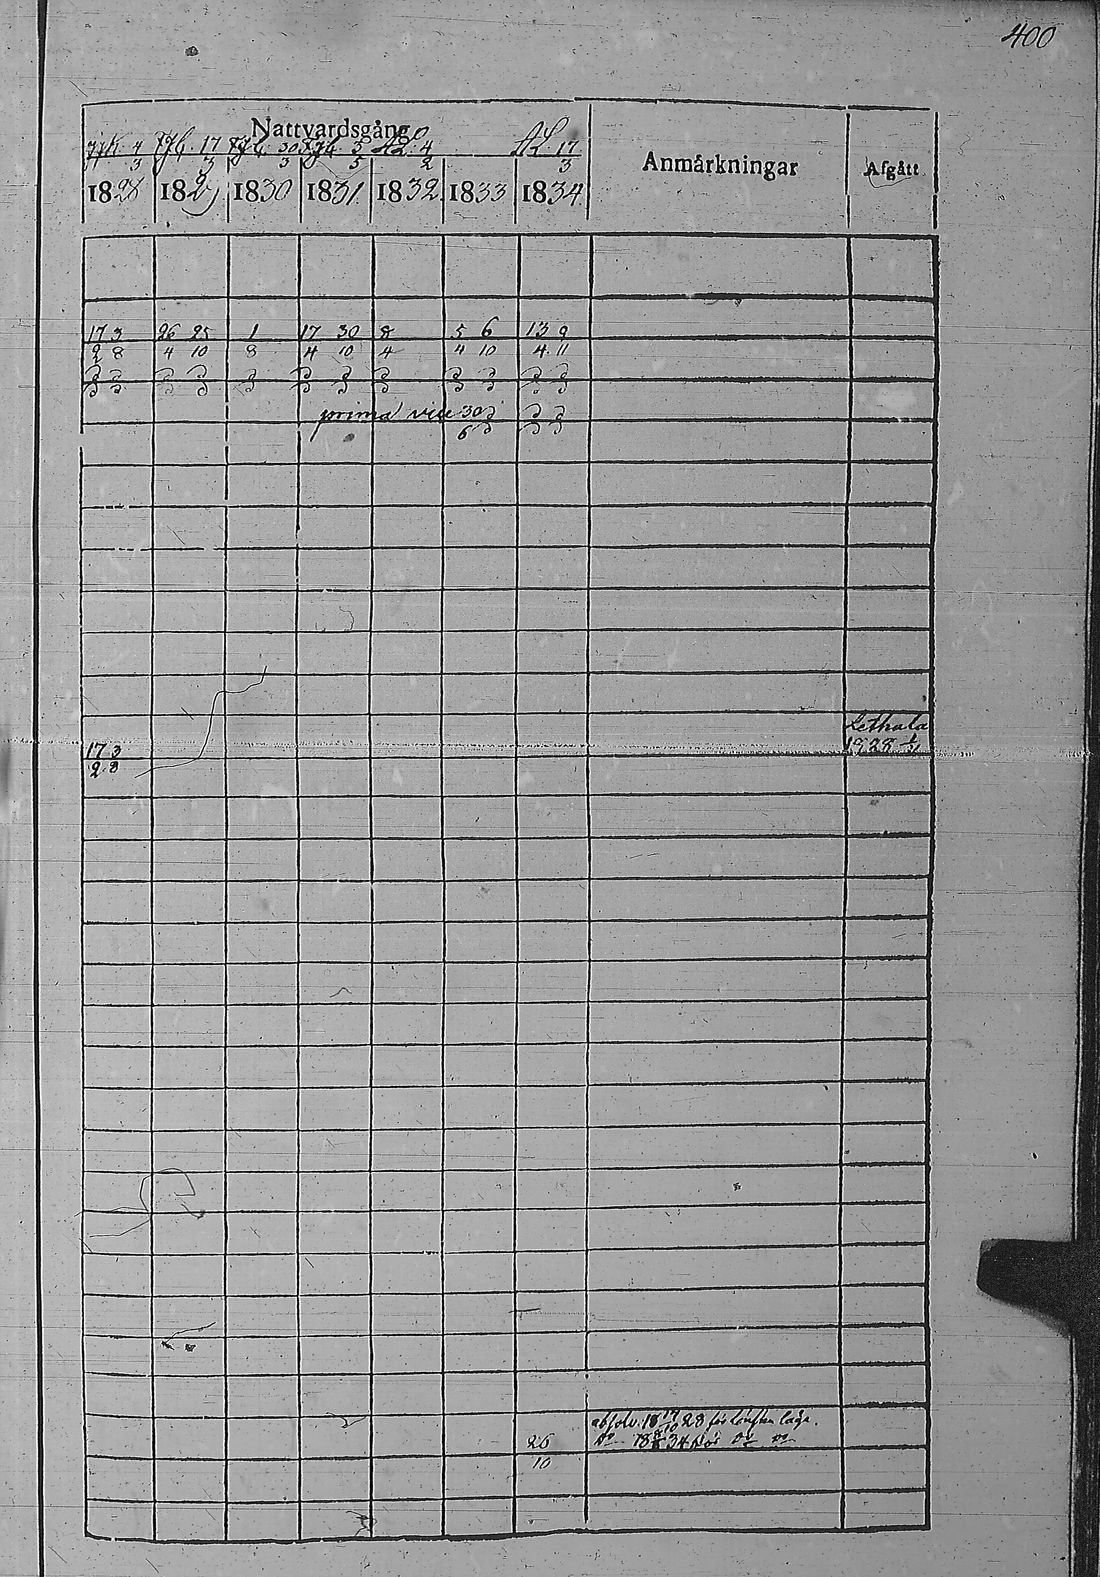 400
Nattvardsgång
4 17 30 5 4 17
3 3 3 5 2 3
1828 1829 1830 1831 1832 1833 1834 Anmärkningar Afgått
17 3 26 25 1 17 30 8 5 6 13 9
2 8 4 10 8 4 10 4 4 10 4 11
prima vice 30
6
Lethala
17 3 1828
2 8
absolv. 18 17/10 28 för lönsk. läge.
26 Do 18 34 för Do Do
10